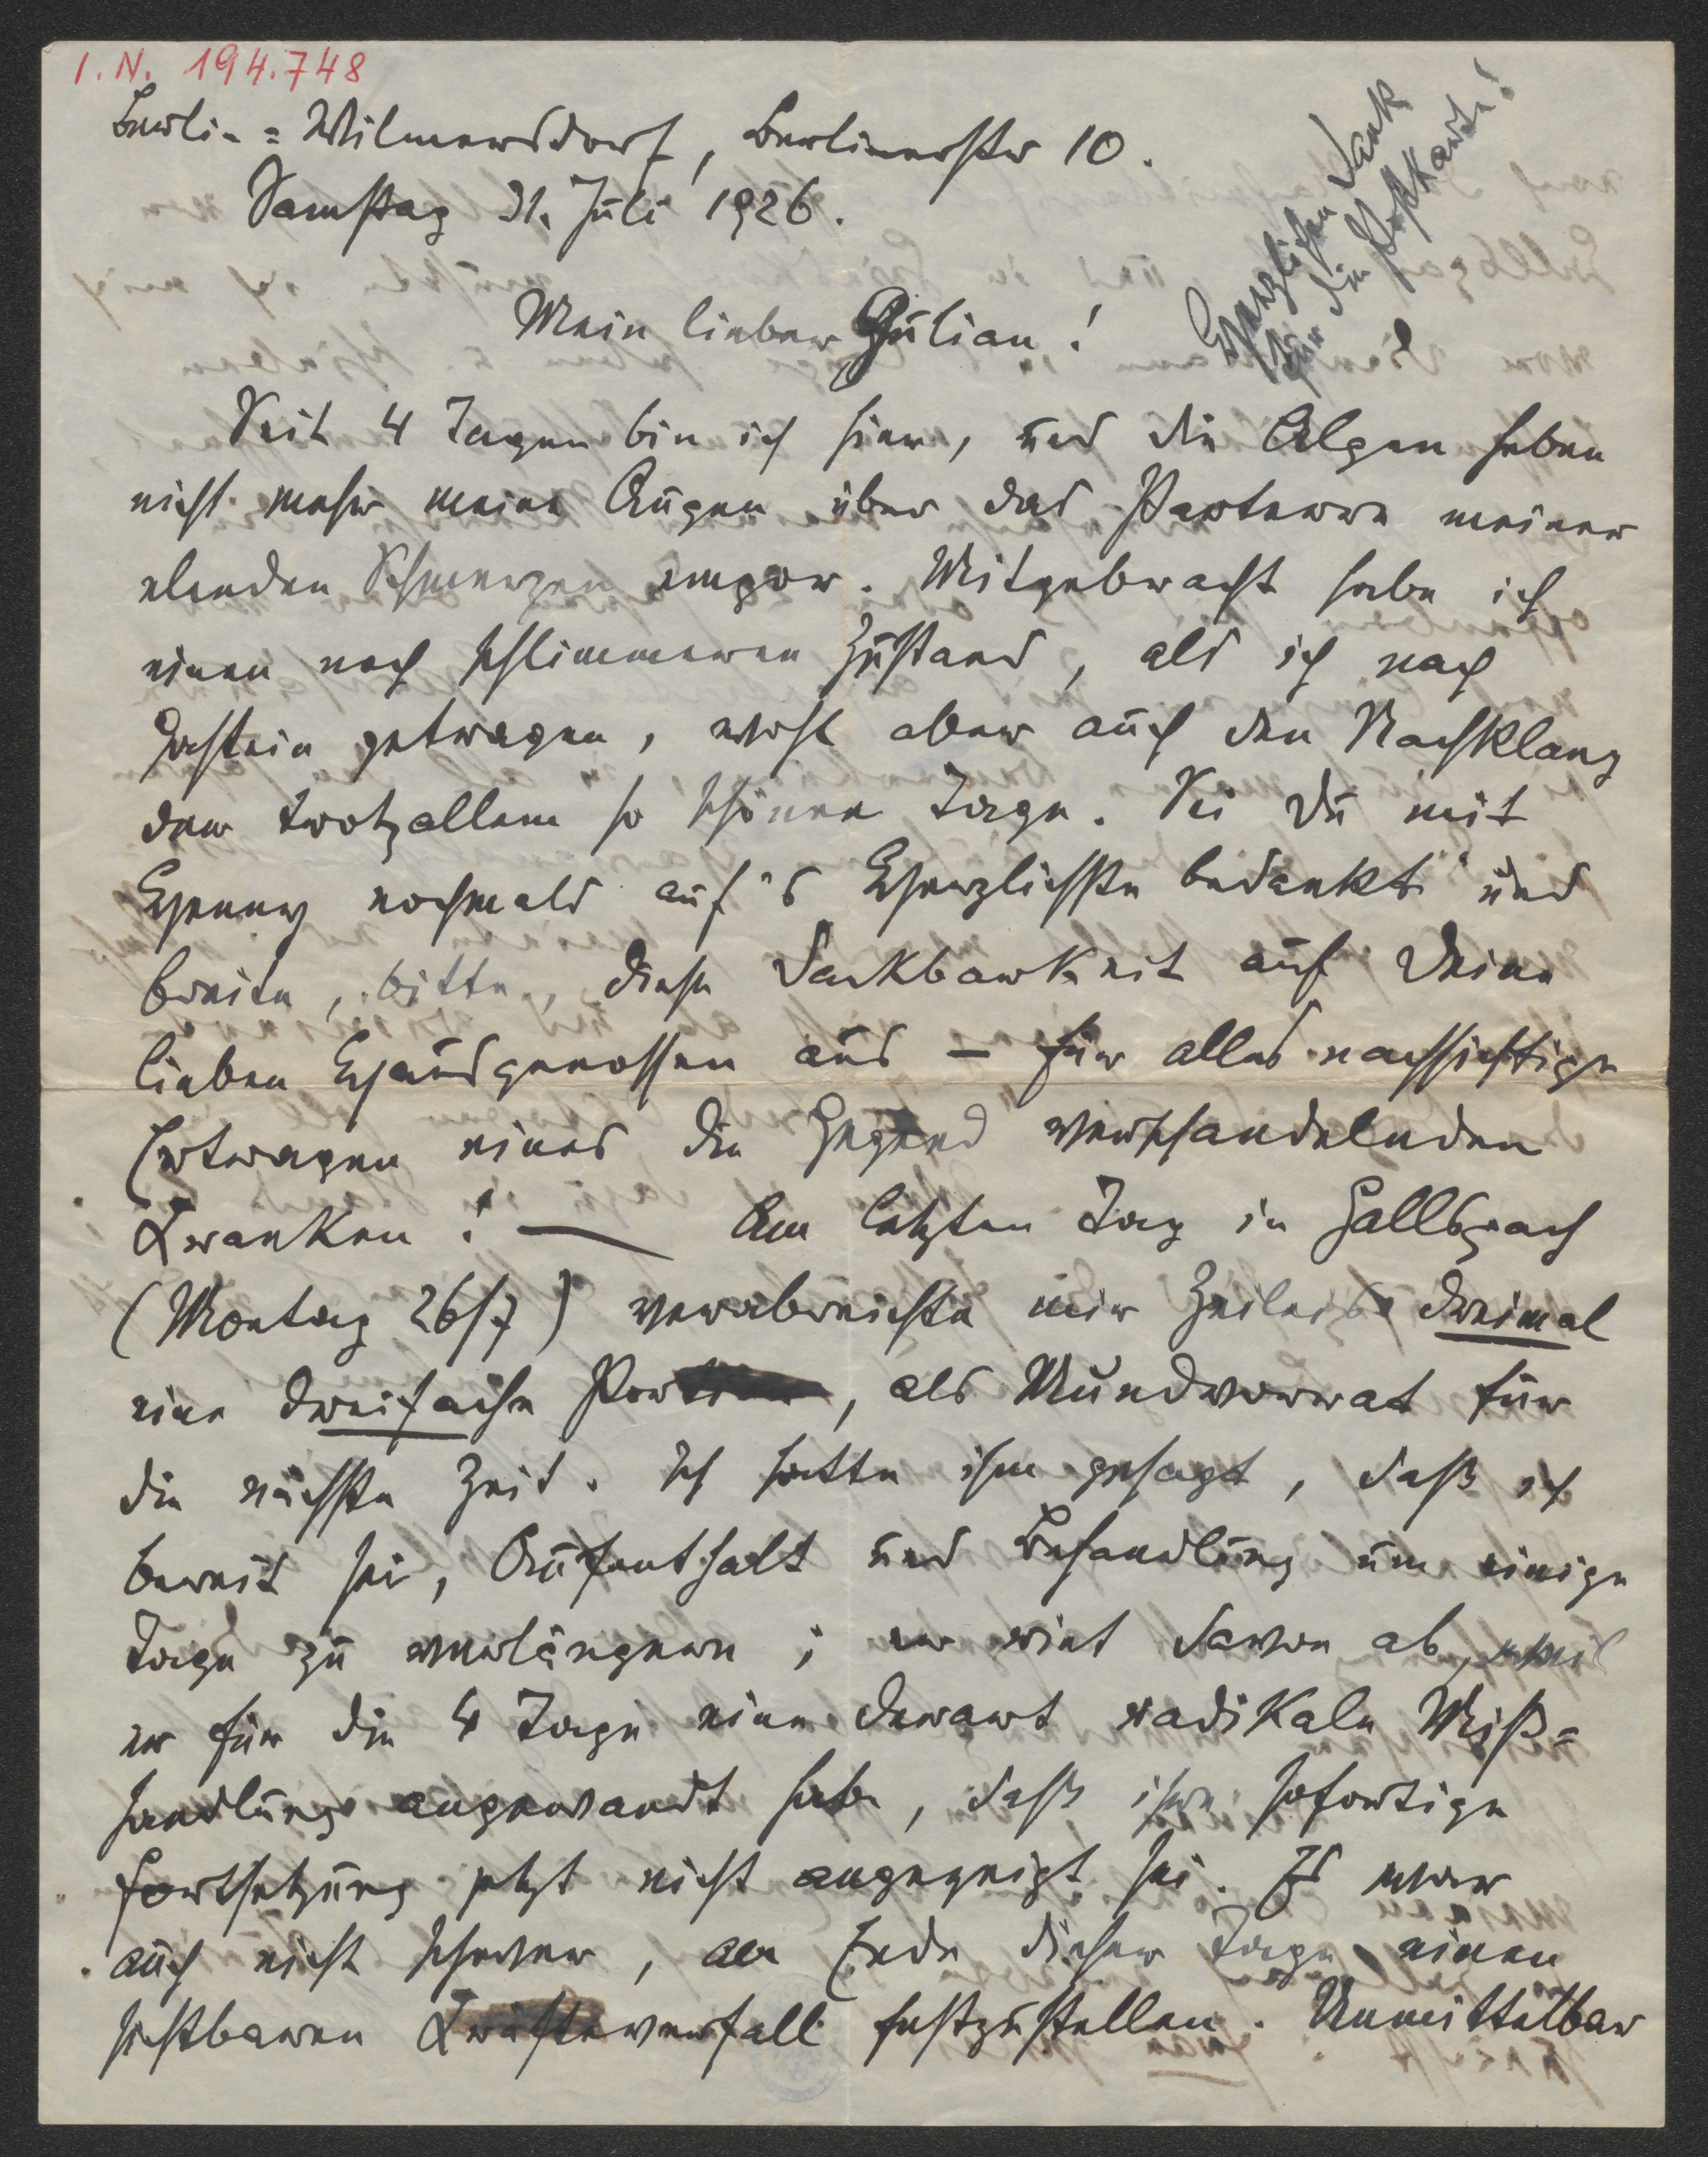 I. N. 194.748
Berlin=Wilmersdorf, Berlinerstr 10.
Samstag 31. Juli 1926.
Herzlichen Dank
für die Postkarte!
Mein lieber Julian!
Seit 4 Tagen bin ich hier, und die Algen heben
nicht mehr meine Augen über das Parterre meiner
elenden Schmerzen empor. Mitgebracht habe ich
einen noch schlimmeren Zustand, als ich nach
Gastein getragen, wohl aber auch den Nachklang
der trotzallem so schönen Tage. Sei Du mit
Henny nochmals auf's Herzlichste bedankt und
breite, bitte, diese Dankbarkeit auf Deine
lieben Hausgenossen aus – für alles nachsichtige
Ertragen eines die Gegend verschandelnden
Kranken! — Am letzten Tag in Gallspach
(Montag 26/7) verabreichte mir Zeileis dreimal
eine dreifache Portion, als Mundvorrat für
die nächste Zeit. Ich hatte ihm gesagt, daß ich
bereit sei, Aufenthalt und Behandlung um einige
Tage zu verlängern; er riet davon ab, weil
er für die 4 Tage eine derart radikale Miß=
handlung angewandt habe, daß ihre sofortige
Fortsetzung jetzt nicht angezeigt sei. Es war
auch nicht schwer, am Ende dieser Tage einen
sichtbaren Kräfteverfall festzustellen. Unmittelbar